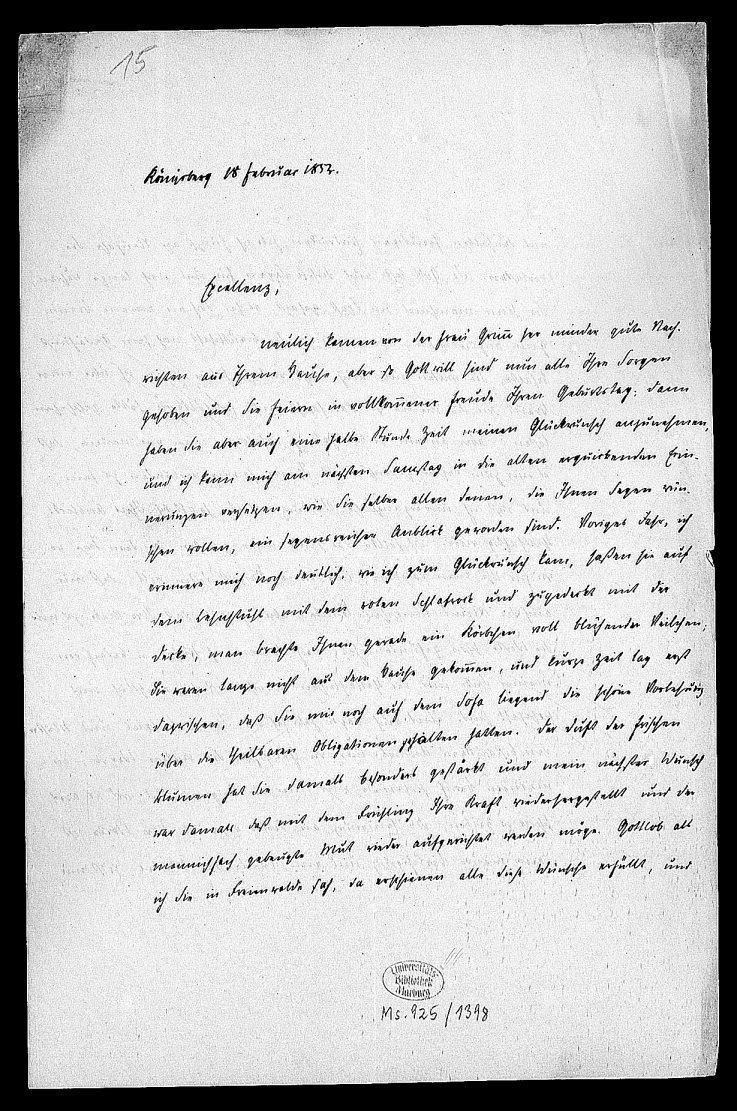 15
Königsberg 18 Februar 1852.
Excellenz,
neulich kamen von der Frau Grimm her minder gute Nach-
richten aus Ihrem Hause, aber so Gott will sind nun alle Ihre Sorgen
gehoben und Sie feiern in vollkommener Freude Ihren Geburtstag; dann
haben Sie aber auch eine halbe Stunde Zeit meinen Glückwunsch anzunehmen,
und ich kann mich am nächsten Samstag in die alten erquickenden Erin-
nerungen versetzen, wie Sie selber allen denen, die Ihnen Segen wün-
schen wollen, ein segensreicher Anblick geworden sind. Voriges Jahr, ich
erinnere mich noch deutlich, wie ich zum Glückwunsch kam, saßen sie auf
dem Lehnstuhl mit dem roten Schlafrock und zugedeckt mit der
Decke, man brachte Ihnen gerade ein Körbchen voll blühender Veilchen;
Sie waren lange nicht aus dem Hause gekommen, und kurze Zeit lag erst
dazwischen, daß Sie mir noch auf dem Sofa liegend die schöne Vorlesung
über die theilbaren Obligationen gehalten hatten. Der Duft der frischen
Blumen hat Sie damals besonders gestärkt und mein nächster Wunsch
war damals daß mit dem Frühling Ihre Kraft wiederhergestellt und der
mannichfach gebeugte Mut wieder aufgerichtet werden möge. Gottlob als
ich Sie in Freienwalde sah, da erschienen alle diese Wünsche erfüllt, und
Universitäts-
Bibliothek
Marburg
Ms. 925/1398